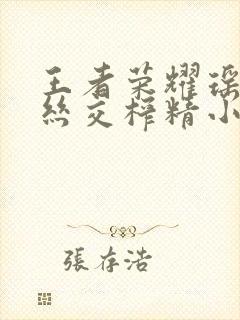 王者荣耀瑶
丝交榨精小
張存浩